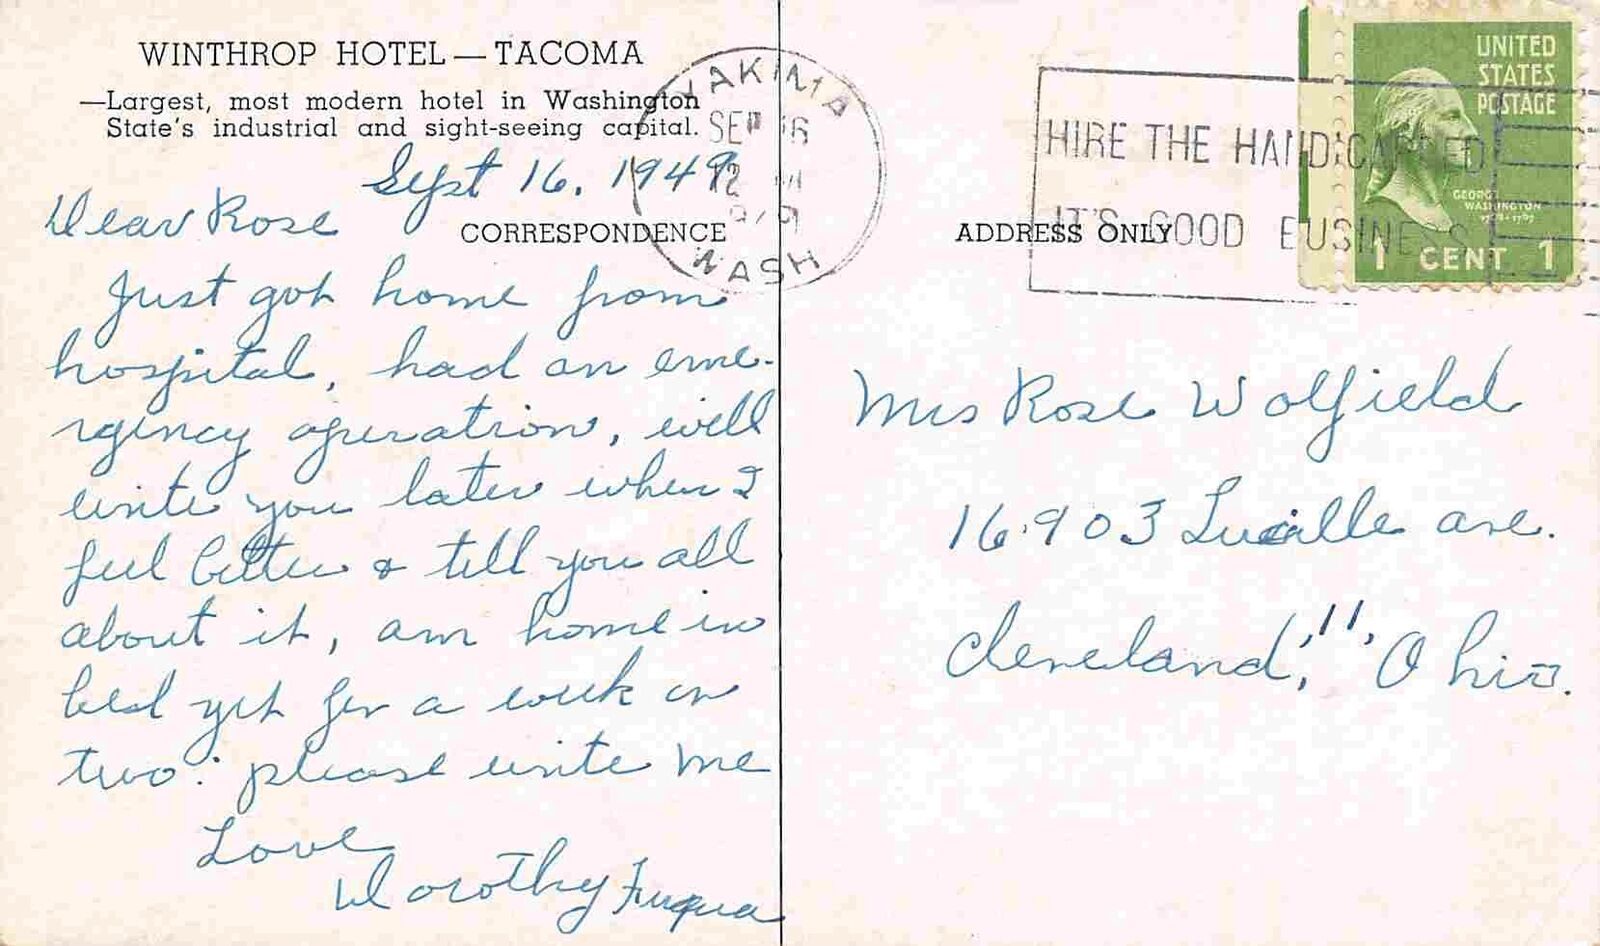 WINTHROP HOTEL — TACOMA
—Largest, most modern hotel in Washington
State's industrial and sight-seeing capital.
Sept 16. 1949
Dear Rose
CORRESPONDENCE
Just got home from
hospital, had an eme-
rgency operation, will
write you later when I
feel better & tell you all
about it, am home in
bed yet for a week or
two. please write me
Love
Dorothy Fuqua
YAKIMA
SEP 16
12 M
1949
WASH
HIRE THE HANDICAPPED
IT'S GOOD BUSINESS
UNITED
STATES
POSTAGE
GEORGE
WASHINGTON
1 CENT 1
ADDRESS ONLY
Mrs Rose Wolfield
16903 Lucille ave.
Cleveland, 11, Ohio.